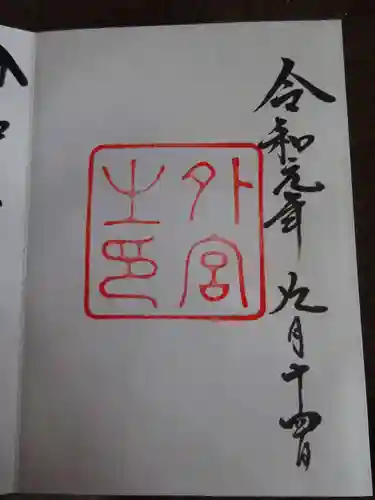 令和元年九月十四日
外宮
之印